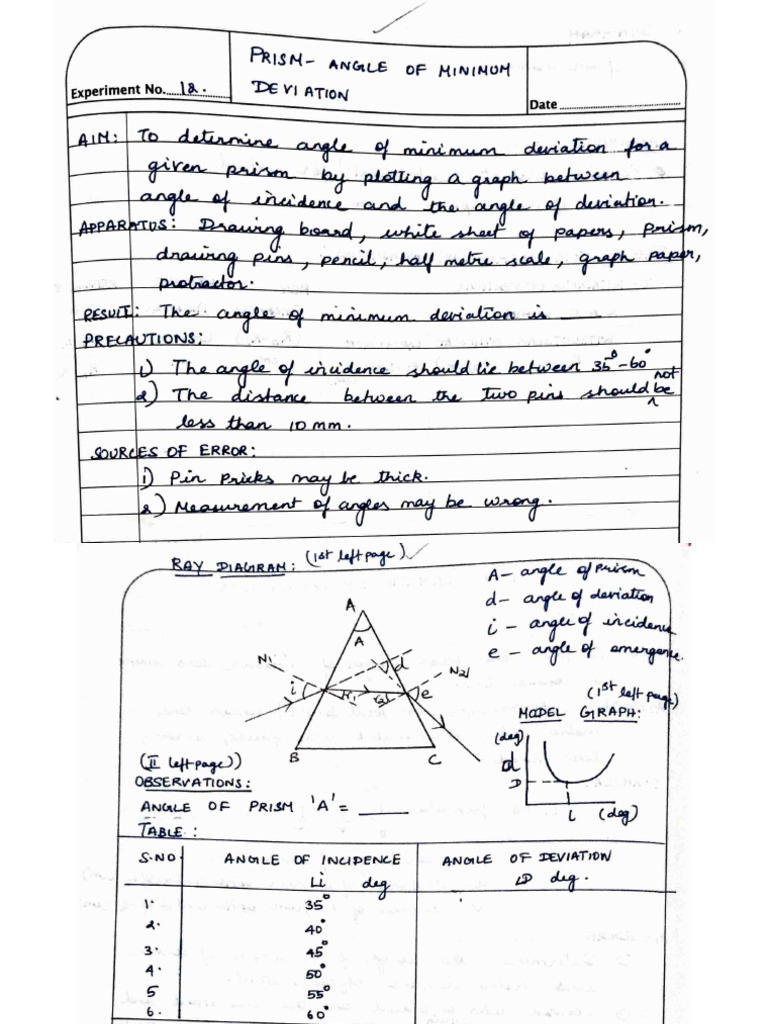 Experiment No. 12.
PRISM- ANGLE OF MINIMUM
DEVIATION
Date
AIM: To determine angle of minimum deviation for a
given prism by plotting a graph between
angle of incidence and the angle of deviation.
APPARATUS: Drawing board, white sheet of papers, prism,
drawing pins, pencil, half metre scale, graph paper,
protractor.
RESULT: The angle of minimum deviation is
PRECAUTIONS:
1) The angle of incidence should lie between 35°-60°
2) The distance between the two pins should not be
less than 10 mm.
SOURCES OF ERROR:
1) Pin pricks may be thick.
2) Measurement of angles may be wrong.
RAY DIAGRAM: (1st left page)
A- angle of prism
d- angle of deviation
i - angle of incidence
e - angle of emergence.
A
A
N1
d
N2
i
r1
r2
e
B
C
(1st left page)
MODEL GRAPH:
(deg)
d
D
i (deg)
(II left page))
OBSERVATIONS:
ANGLE OF PRISM 'A' = ____
TABLE:
S.NO ANGLE OF INCIDENCE ANGLE OF DEVIATION
Li deg LD deg.
1. 35°
2. 40°
3. 45°
4. 50°
5 55°
6. 60°